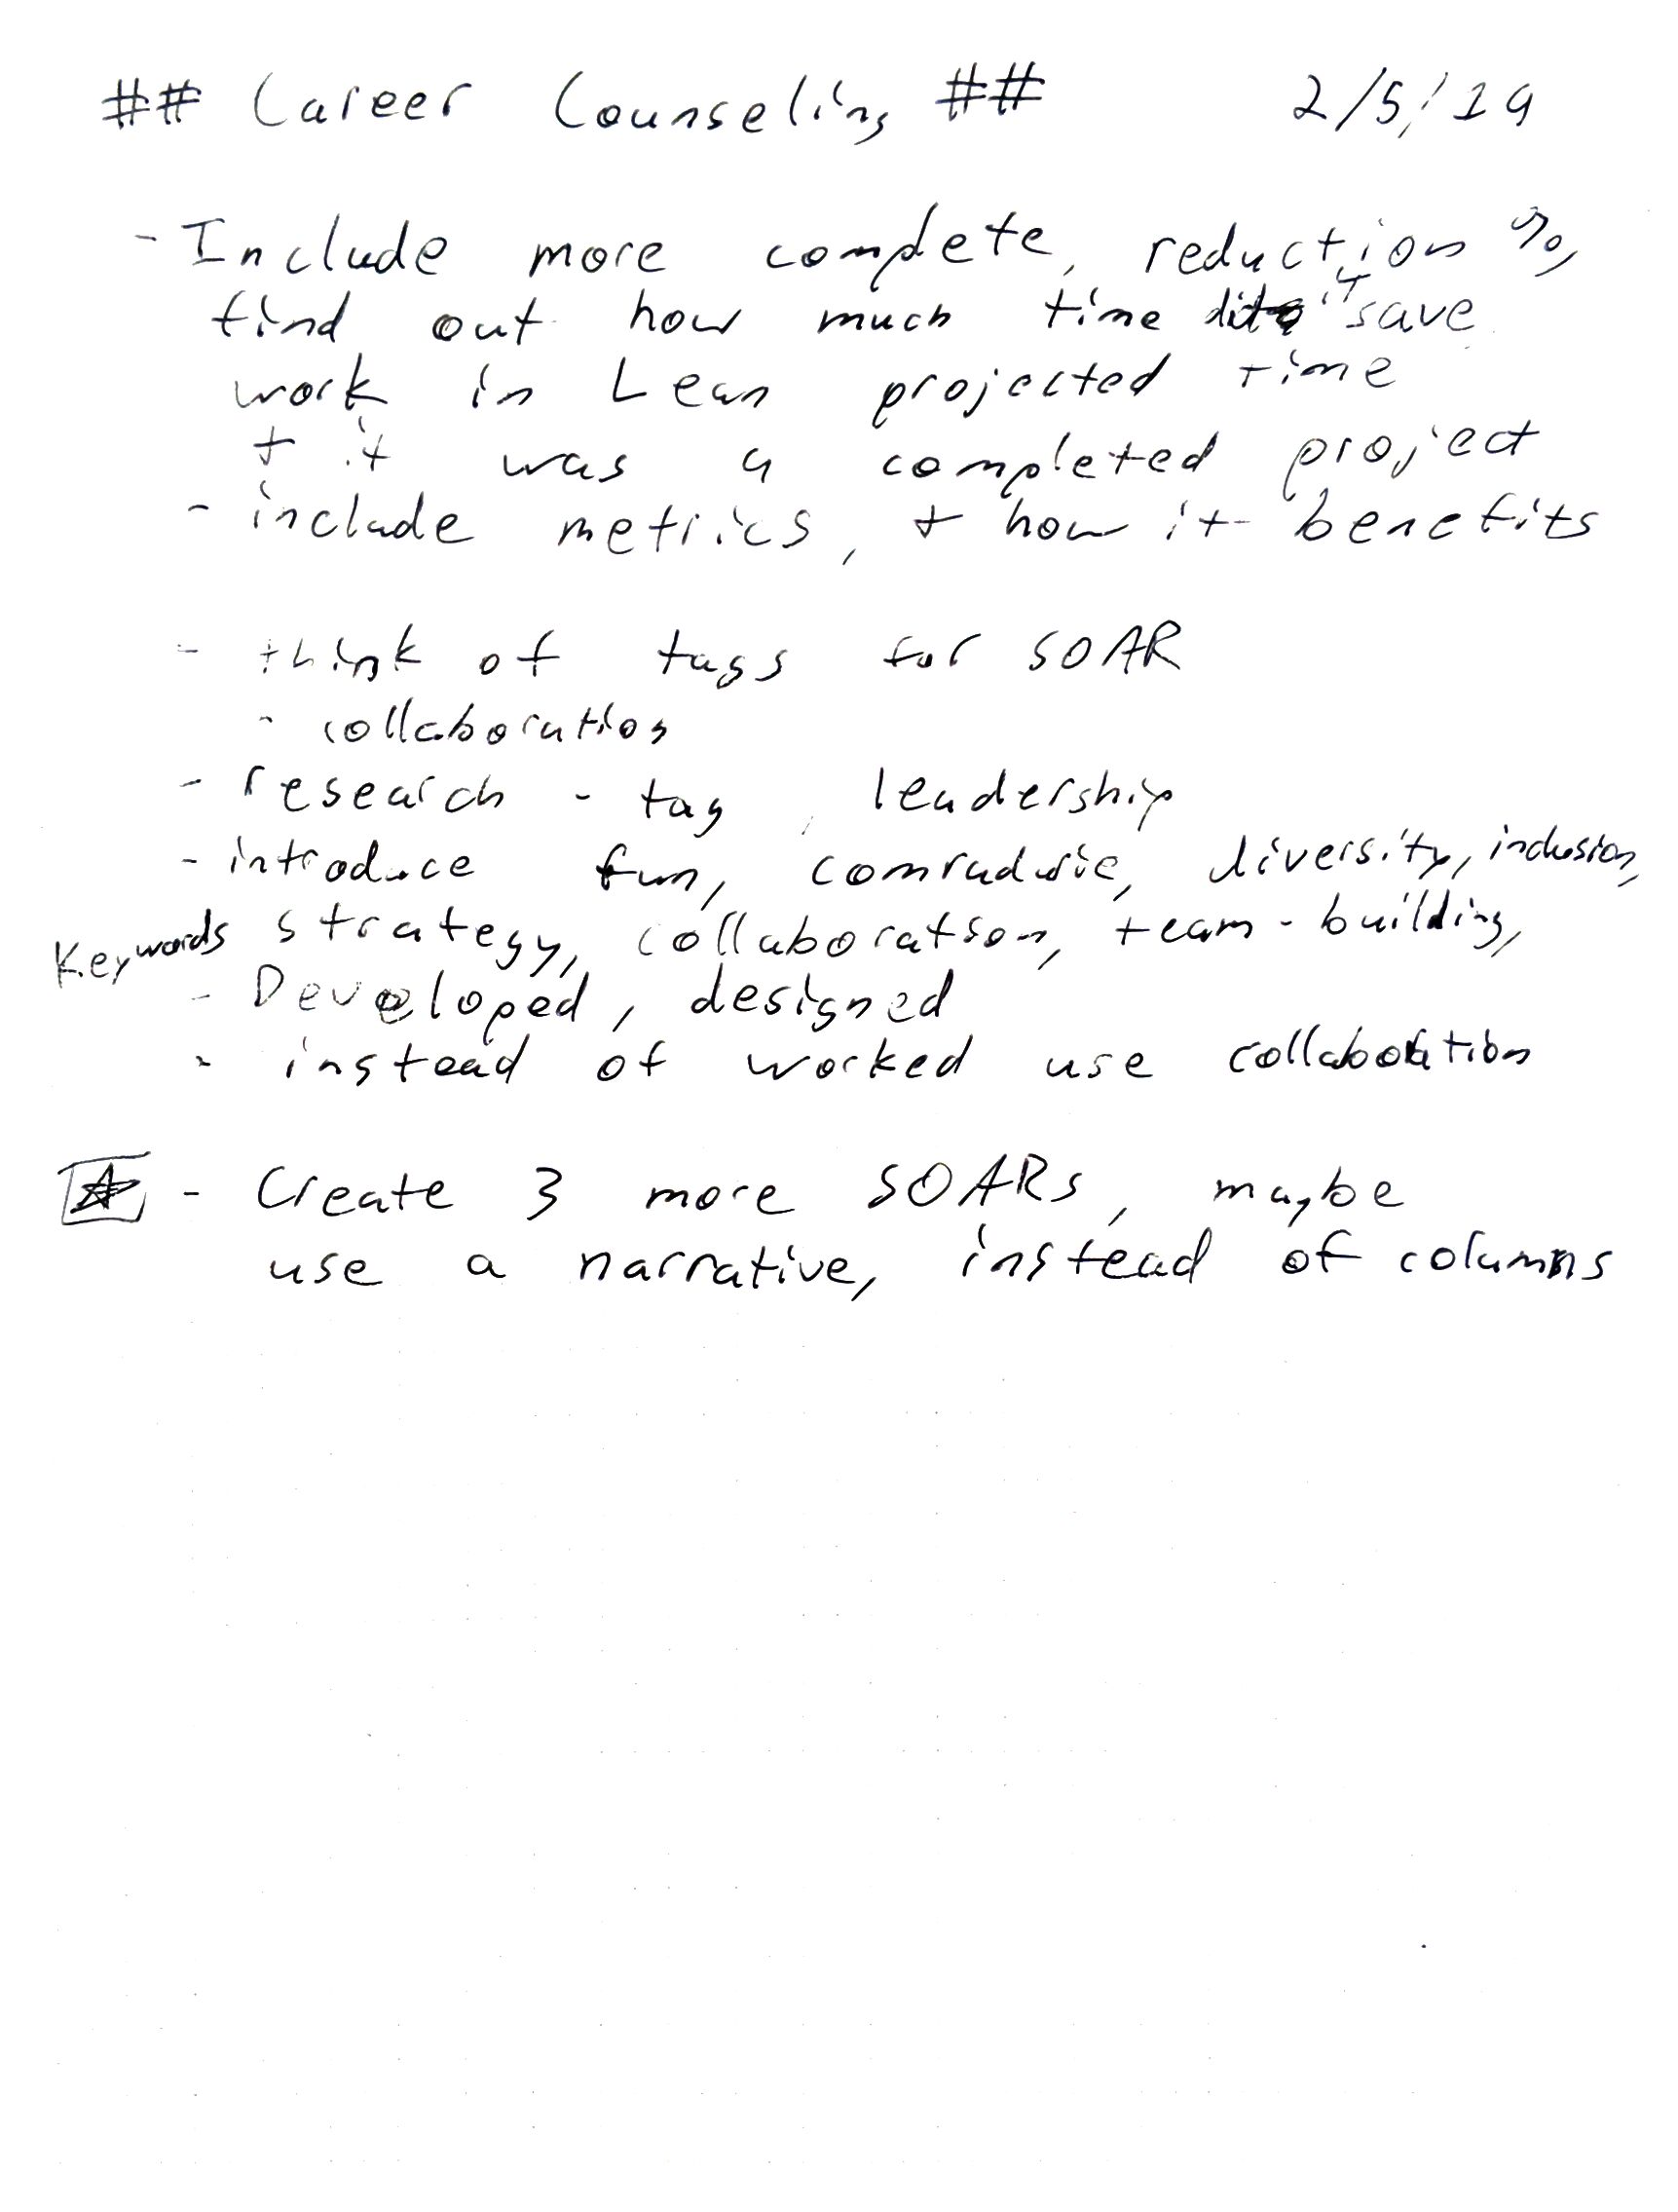 ## Career Counseling ## 2/5/19
- Include more complete, reduction %,
find out how much time it save
work in Lean projected time
+ it was a completed project
- include metrics, + how it benefits
- think of tags for SOAR
- collaboration
- research - tag, leadership
- introduce fun, comraderie, diversity, inclusion,
Keywords strategy, collaboration, team-building,
- Developed, designed
- instead of worked use collaboration
- Create 3 more SOARs, maybe
use a narrative, instead of columns